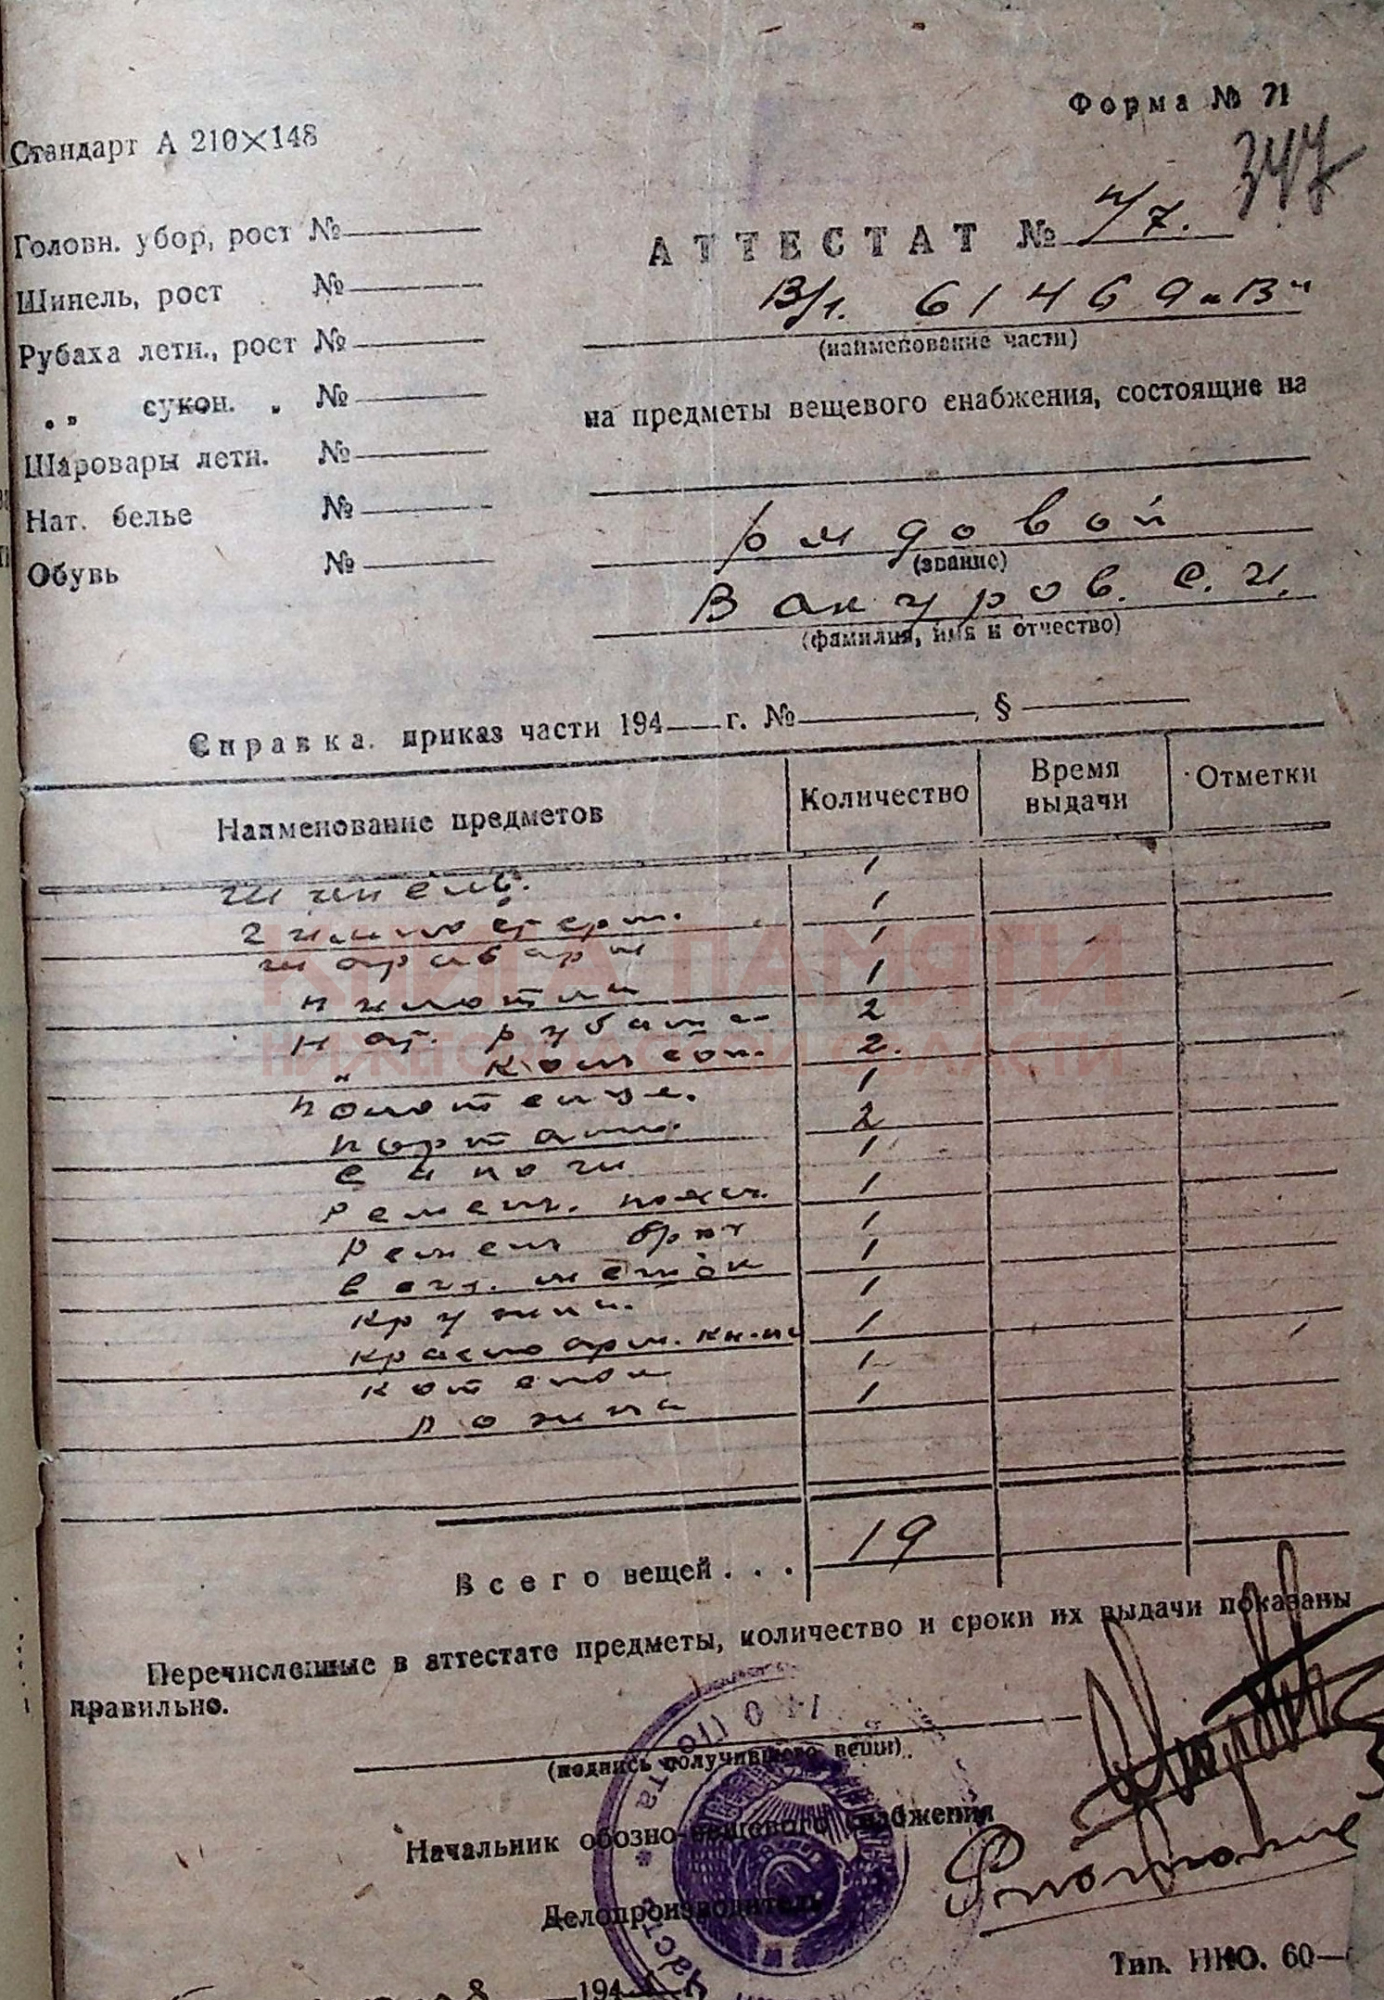 Форма № 71
Стандарт А 210×148
347
Головн. убор, рост №
Шинель, рост №
Рубаха летн., рост №
„ „ сукон. „ №
Шаровары летн. №
Нат. белье №
Обувь №
АТТЕСТАТ № н/7.
В/ч. 61469 „В"
(наименование части)
на предметы вещевого снабжения, состоящие на
рядовой
(звание)
Вакуров. С. И.
(фамилия, имя и отчество)
Справка. приказ части 194 г. № , §
Наименование предметов Количество Время выдачи Отметки
шинель. 1
гимнастерк. 1
шаровары 1
пилотки 1
нат. рубаш- 2
„ кальсон. 2.
полотенце. 1
портянк. 2
сапоги 1
Ремень. пояс. 1
Ремень брюч 1
вещ. мешок 1
кружка. 1
красноарм. кн-ка 1
котелок 1
ложка 1
КНИГА ПАМЯТИ
НИЖЕГОРОДСКОЙ ОБЛАСТИ
Всего вещей . . . 19
Перечисленные в аттестате предметы, количество и сроки их выдачи показаны
правильно.
(подпись получившего вещи)
Начальник обозно-вещевого снабжения
Делопроизводитель
Тип. НКО. 60—
194